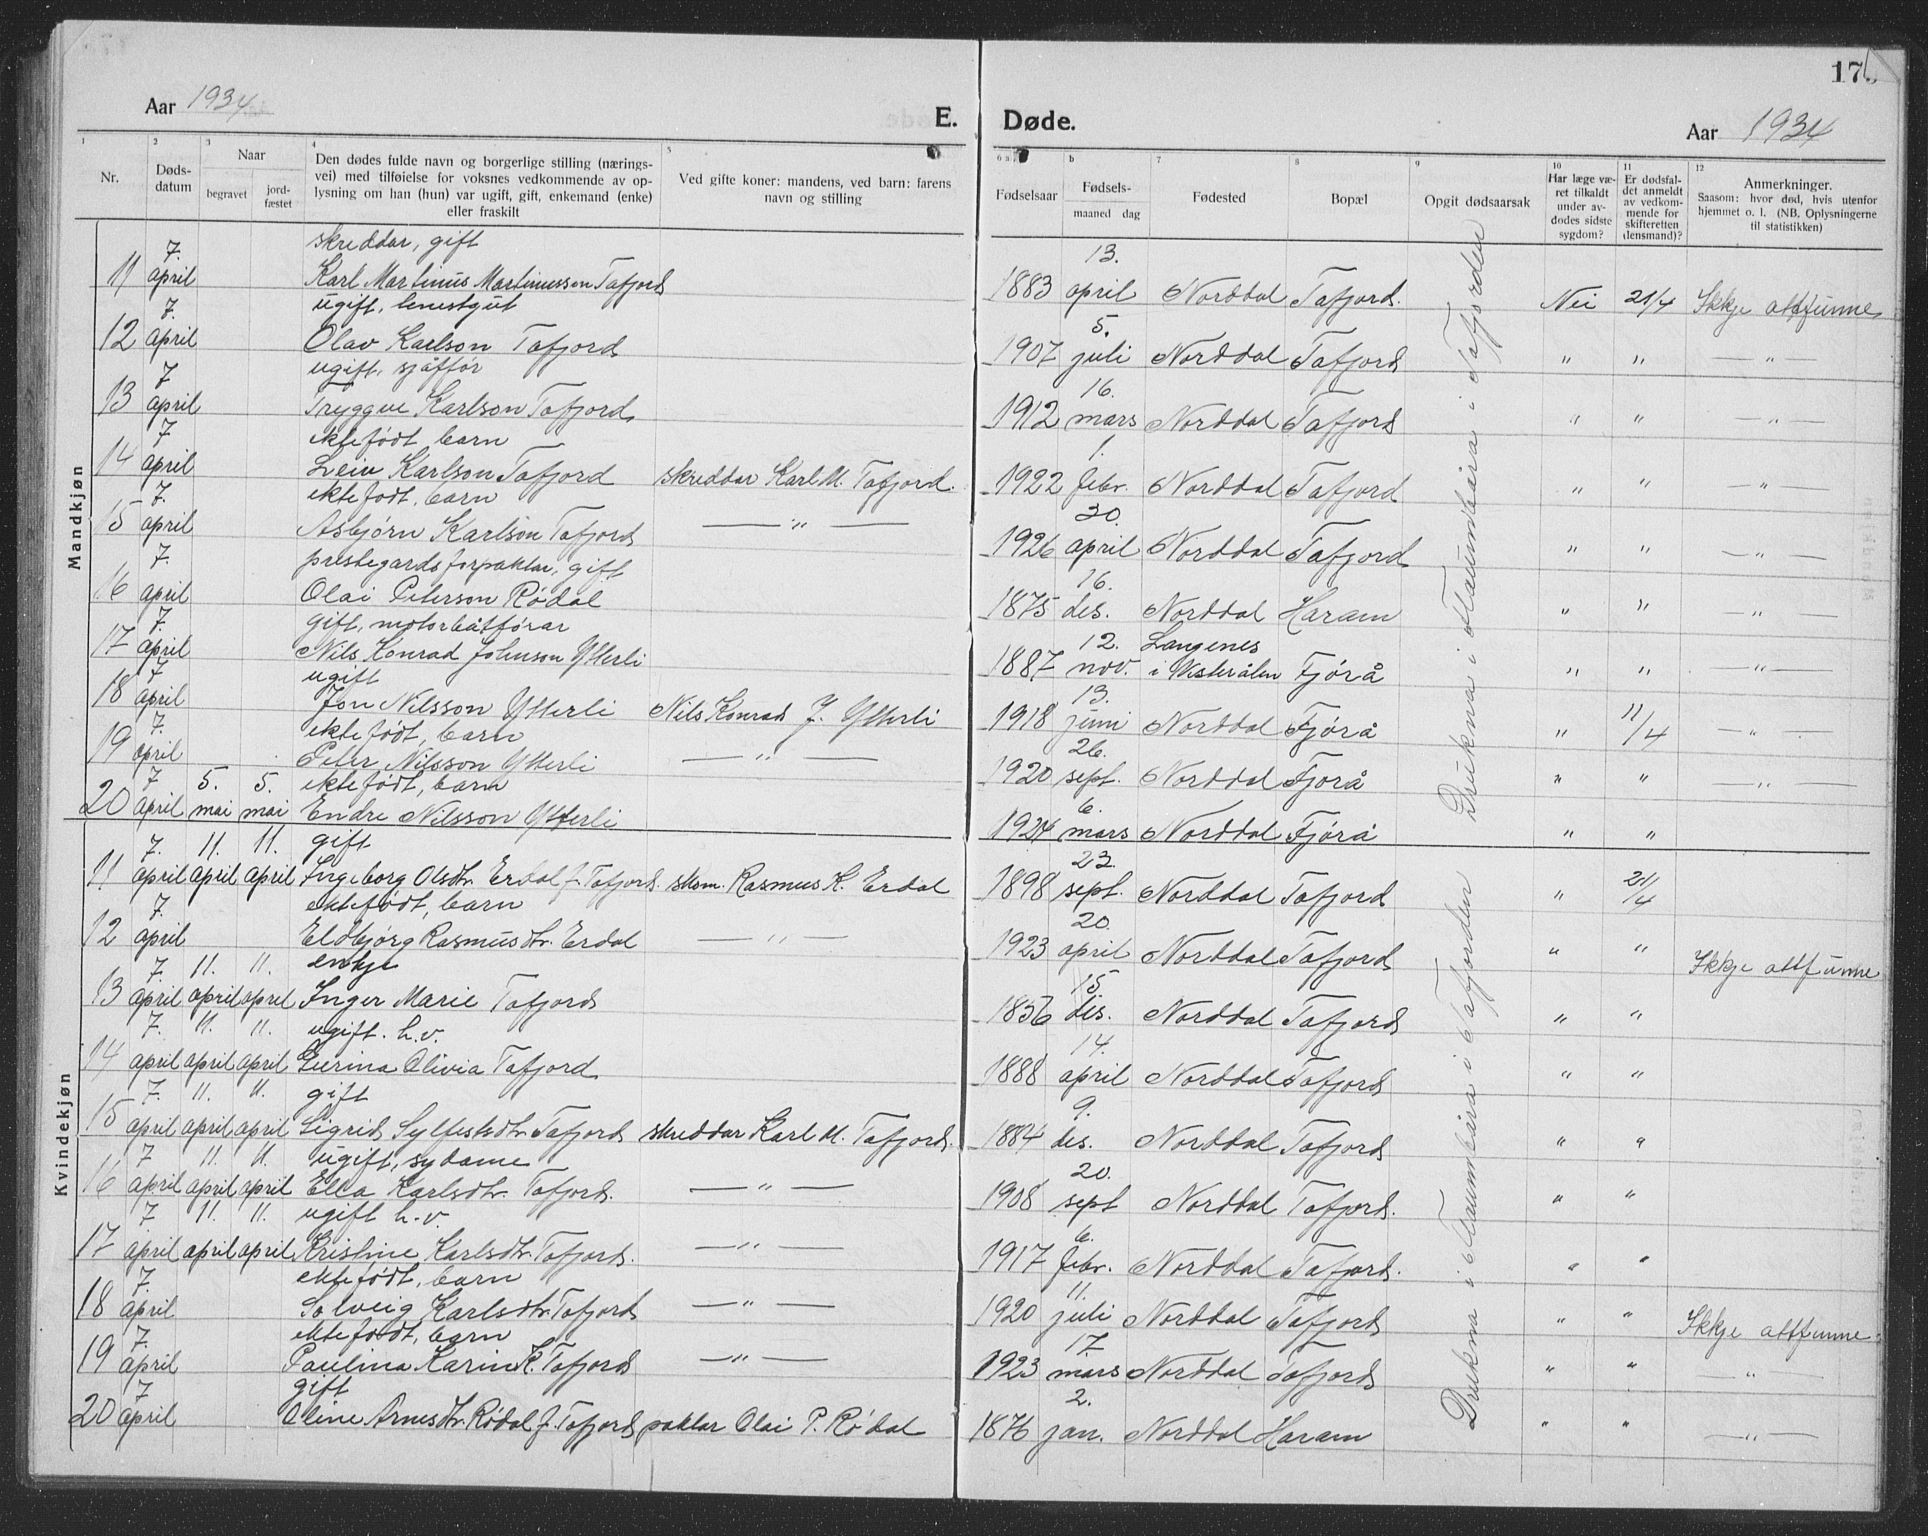 17
Aar 1934
E.
Døde.
Aar 1934
1 2 3 4 5 6 a b 7 8 9 10 11 12
Nr.
Døds-
datum
Naar
begravet
jord-
fæstet
Den dødes fulde navn og borgerlige stilling (nærings-
vei) med tilføielse for voksnes vedkommende av op-
lysning om han (hun) var ugift, gift, enkemand (enke)
eller fraskilt
Ved gifte koner: mandens, ved barn: farens
navn og stilling
Fødselsaar
Fødsels-
maaned dag
Fødested
Bopæl
Opgit dødsaarsak
Har læge væ-
ret tilkaldt
under av-
dødes sidste
sygdom?
Er dødsfal-
det anmeldt
av vedkom-
mende for
skifteretten
(lensmand)?
Anmerkninger.
Saasom: hvor død, hvis utenfor
hjemmet o. l. (NB. Oplysningerne
til statistikken)
Mandkjøn
7. skreddar, gift 13.
11 april Karl Martinus Martinusson Tafjord 1883 april Norddal Tafjord. Nei 21/4 Ikkje attfunne
7. ugift, 5.
12 april Olav Karlson Tafjord 1907 juli Norddal Tafjord " " — " —
7 ugift, sjåffør 16.
13 april Tryggve Karlson Tafjord 1912 mars Norddal Tafjord " " — " —
7 ektefødt, barn 1.
14 april Leiv Karlson Tafjord skreddar Karl M. Tafjord. 1922 febr. Norddal Tafjord " " — " —
7. ektefødt, barn 30.
15 april Asbjørn Karlson Tafjord — " — 1926 april Norddal Tafjord " " — " —
7. prestegardsforpaktar, gift 16.
16 april Olai Peterson Rødal 1875 des. Norddal Haram " " — " —
7. gift, motorbåtførar 12. Langenes
17 april Nils Konrad Johnson Ytterli 1887 nov. i Vesterålen Fjørå " " — " —
7 ugift 13.
18 april Jon Nilsson Ytterli Nils Konrad J. Ytterli 1918 juni Norddal Fjørå " 11/4 — " —
7. ektefødt, barn 26.
19 april Peter Nilsson Ytterli — " — 1920 sept. Norddal Fjørå " " — " —
7 5. 5. ektefødt, barn 6.
20 april mai mai Endre Nilsson Ytterli 1924 mars Norddal Fjørå " "
Drukna i flaumbåra i Tafjorden
Kvindekjøn
7. 11. 11. gift 23.
11 april april april Ingeborg Olsdtr. Erdal f. Tafjord. skom. Rasmus K. Erdal 1898 sept. Norddal Tafjord " 21/4
7. ektefødt, barn 20.
12 april Eldbjørg Rasmusdtr. Erdal — " — 1923 april Norddal Tafjord " " Ikkje attfunne
7. 11. 11. enkje 15.
13 april april april Inger Marie Tafjord 1856 des. Norddal Tafjord " "
7. 11. 11. ugift. h.v. 14.
14 april april april Gurina Olivia Tafjord 1888 april Norddal Tafjord " "
7. 11. 11. gift 9.
15 april april april Sigrid Sylfestsdtr. Tafjord skreddar Karl M. Tafjord. 1884 des. Norddal Tafjord " "
7 11. 11. ugift, sydame 20.
16 april april april Ella Karlsdtr. Tafjord. — " — 1908 sept Norddal Tafjord. " "
7. 11. 11. ugift h.v. 6.
17 april april april Kristine Karlsdtr. Tafjord. — " — 1917 febr. Norddal Tafjord. " "
7. ektefødt, barn 11.
18 april Solveig Karlsdtr. Tafjord — " — 1920 juli Norddal Tafjord " " Ikkje attfunne
7. ektefødt, barn 17.
19 april Paulina Karin K. Tafjord — " — 1923 mars Norddal Tafjord " " "
7 gift 2.
20 april Oline Arnesdtr. Rødal f. Tafjord paktar Olai P. Rødal 1876 jan. Norddal Haram " " — " —
Drukna i flaumbåra i Tafjorden